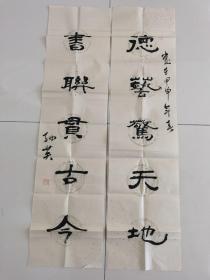 德藝驚天地
歲在甲申年春
書聯貫古今